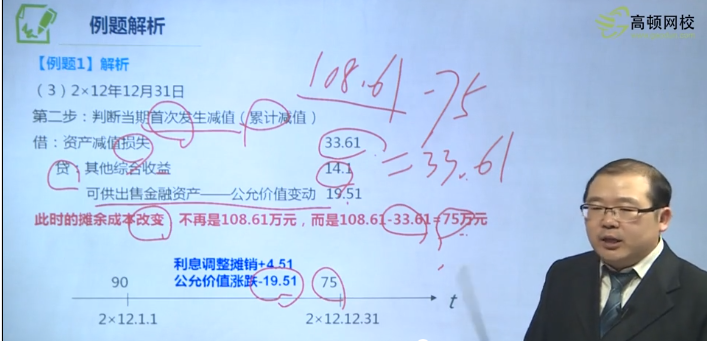 例题解析
高顿网校
【例题1】解析
(3)2×12年12月31日
第二步：判断当期首次发生减值（累计减值）
借：资产减值损失 33.61
贷：其他综合收益 14.1
可供出售金融资产——公允价值变动 19.51
此时的摊余成本改变 不再是108.61万元，而是108.61-33.61=75万元
108.61 -75
=33.61
利息调整摊销+4.51
公允价值涨跌-19.51
90 75
t
2×12.1.1 2×12.12.31